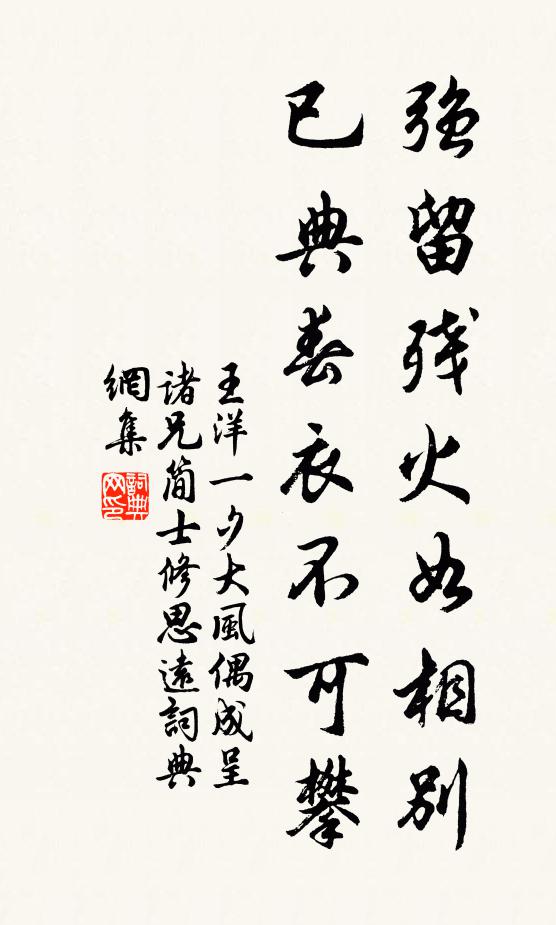 強留殘火如相別
已典春衣不可攀
王洋一夕大風偶成呈
諸兄簡士修思遠詞典
網集
詞典網印